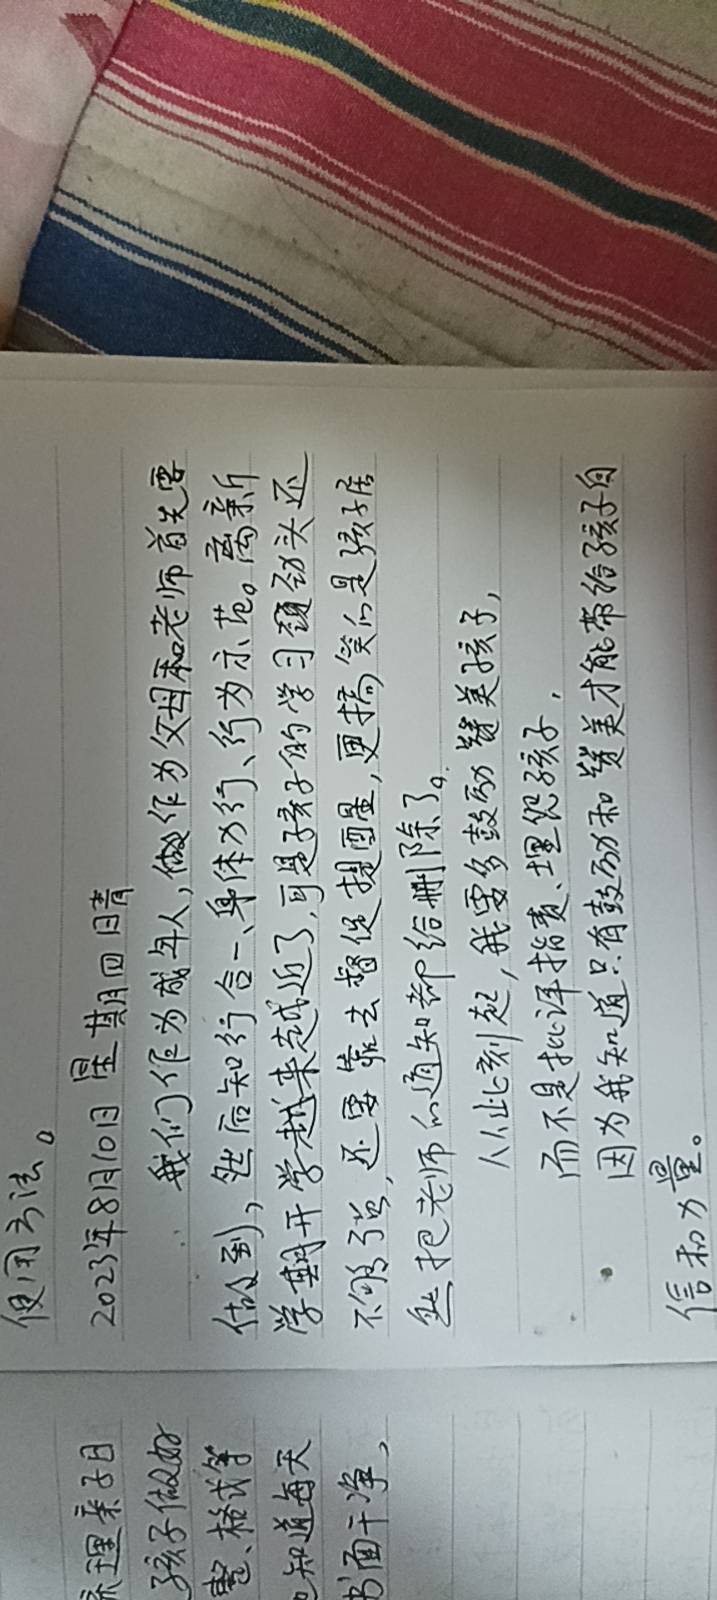 使用方法。
2023年8月10日 星期四 日晴
我们作为成年人，做作为父母和老师首先要
做到，然后知行合一、身体力行、行为示范。离新
学期开学越来越近了，可是孩子的学习劲头还
不够强，还要靠去督促提醒，更搞笑的是孩子居
然把老师的通知都给删除了。
从此刻起，我要多鼓励赞美孩子，
而不是批评指责、埋怨孩子，
因为我知道只有鼓励和赞美才能带给孩子自
信和力量。
理亲子日
孩子做好
整、格式等
知道每天
书面干净，